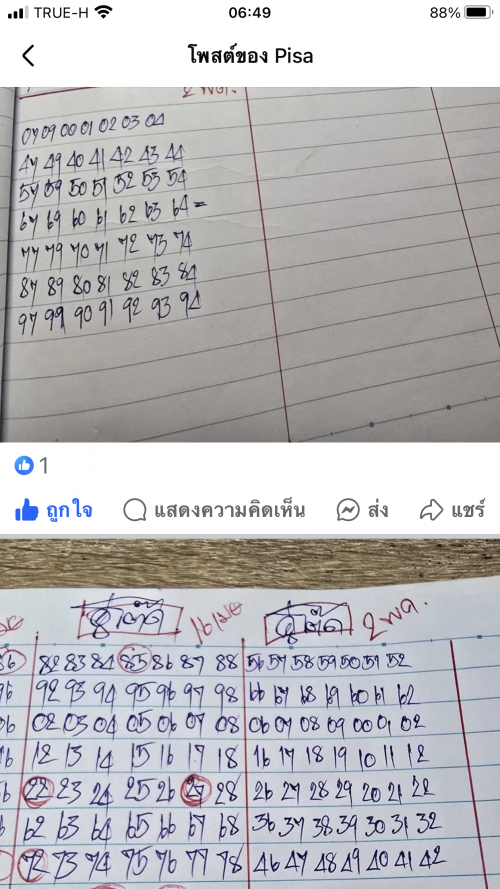 TRUE-H 06:49 88%
โพสต์ของ Pisa
2 พค.
07 09 00 01 02 03 04
47 49 40 41 42 43 44
57 59 50 51 52 53 54
67 69 60 61 62 63 64 =
77 79 70 71 72 73 74
87 89 80 81 82 83 84
97 99 90 91 92 93 94
1
ถูกใจ แสดงความคิดเห็น ส่ง แชร์
16 เมย 2 พค.
86 82 83 84 85 86 87 88 56 57 58 59 50 51 52
96 92 93 94 95 96 97 98 66 67 68 69 60 61 62
06 02 03 04 05 06 07 08 06 07 08 09 00 01 02
16 12 13 14 15 16 17 18 16 17 18 19 10 11 12
22 23 24 25 26 27 28 26 27 28 29 20 21 22
62 63 64 65 66 67 68 36 37 38 39 30 31 32
72 73 74 75 76 77 78 46 47 48 49 40 41 42